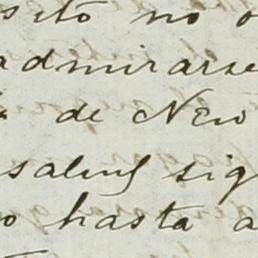 sito no o
admirarse
de New
salens sig
o hasta a